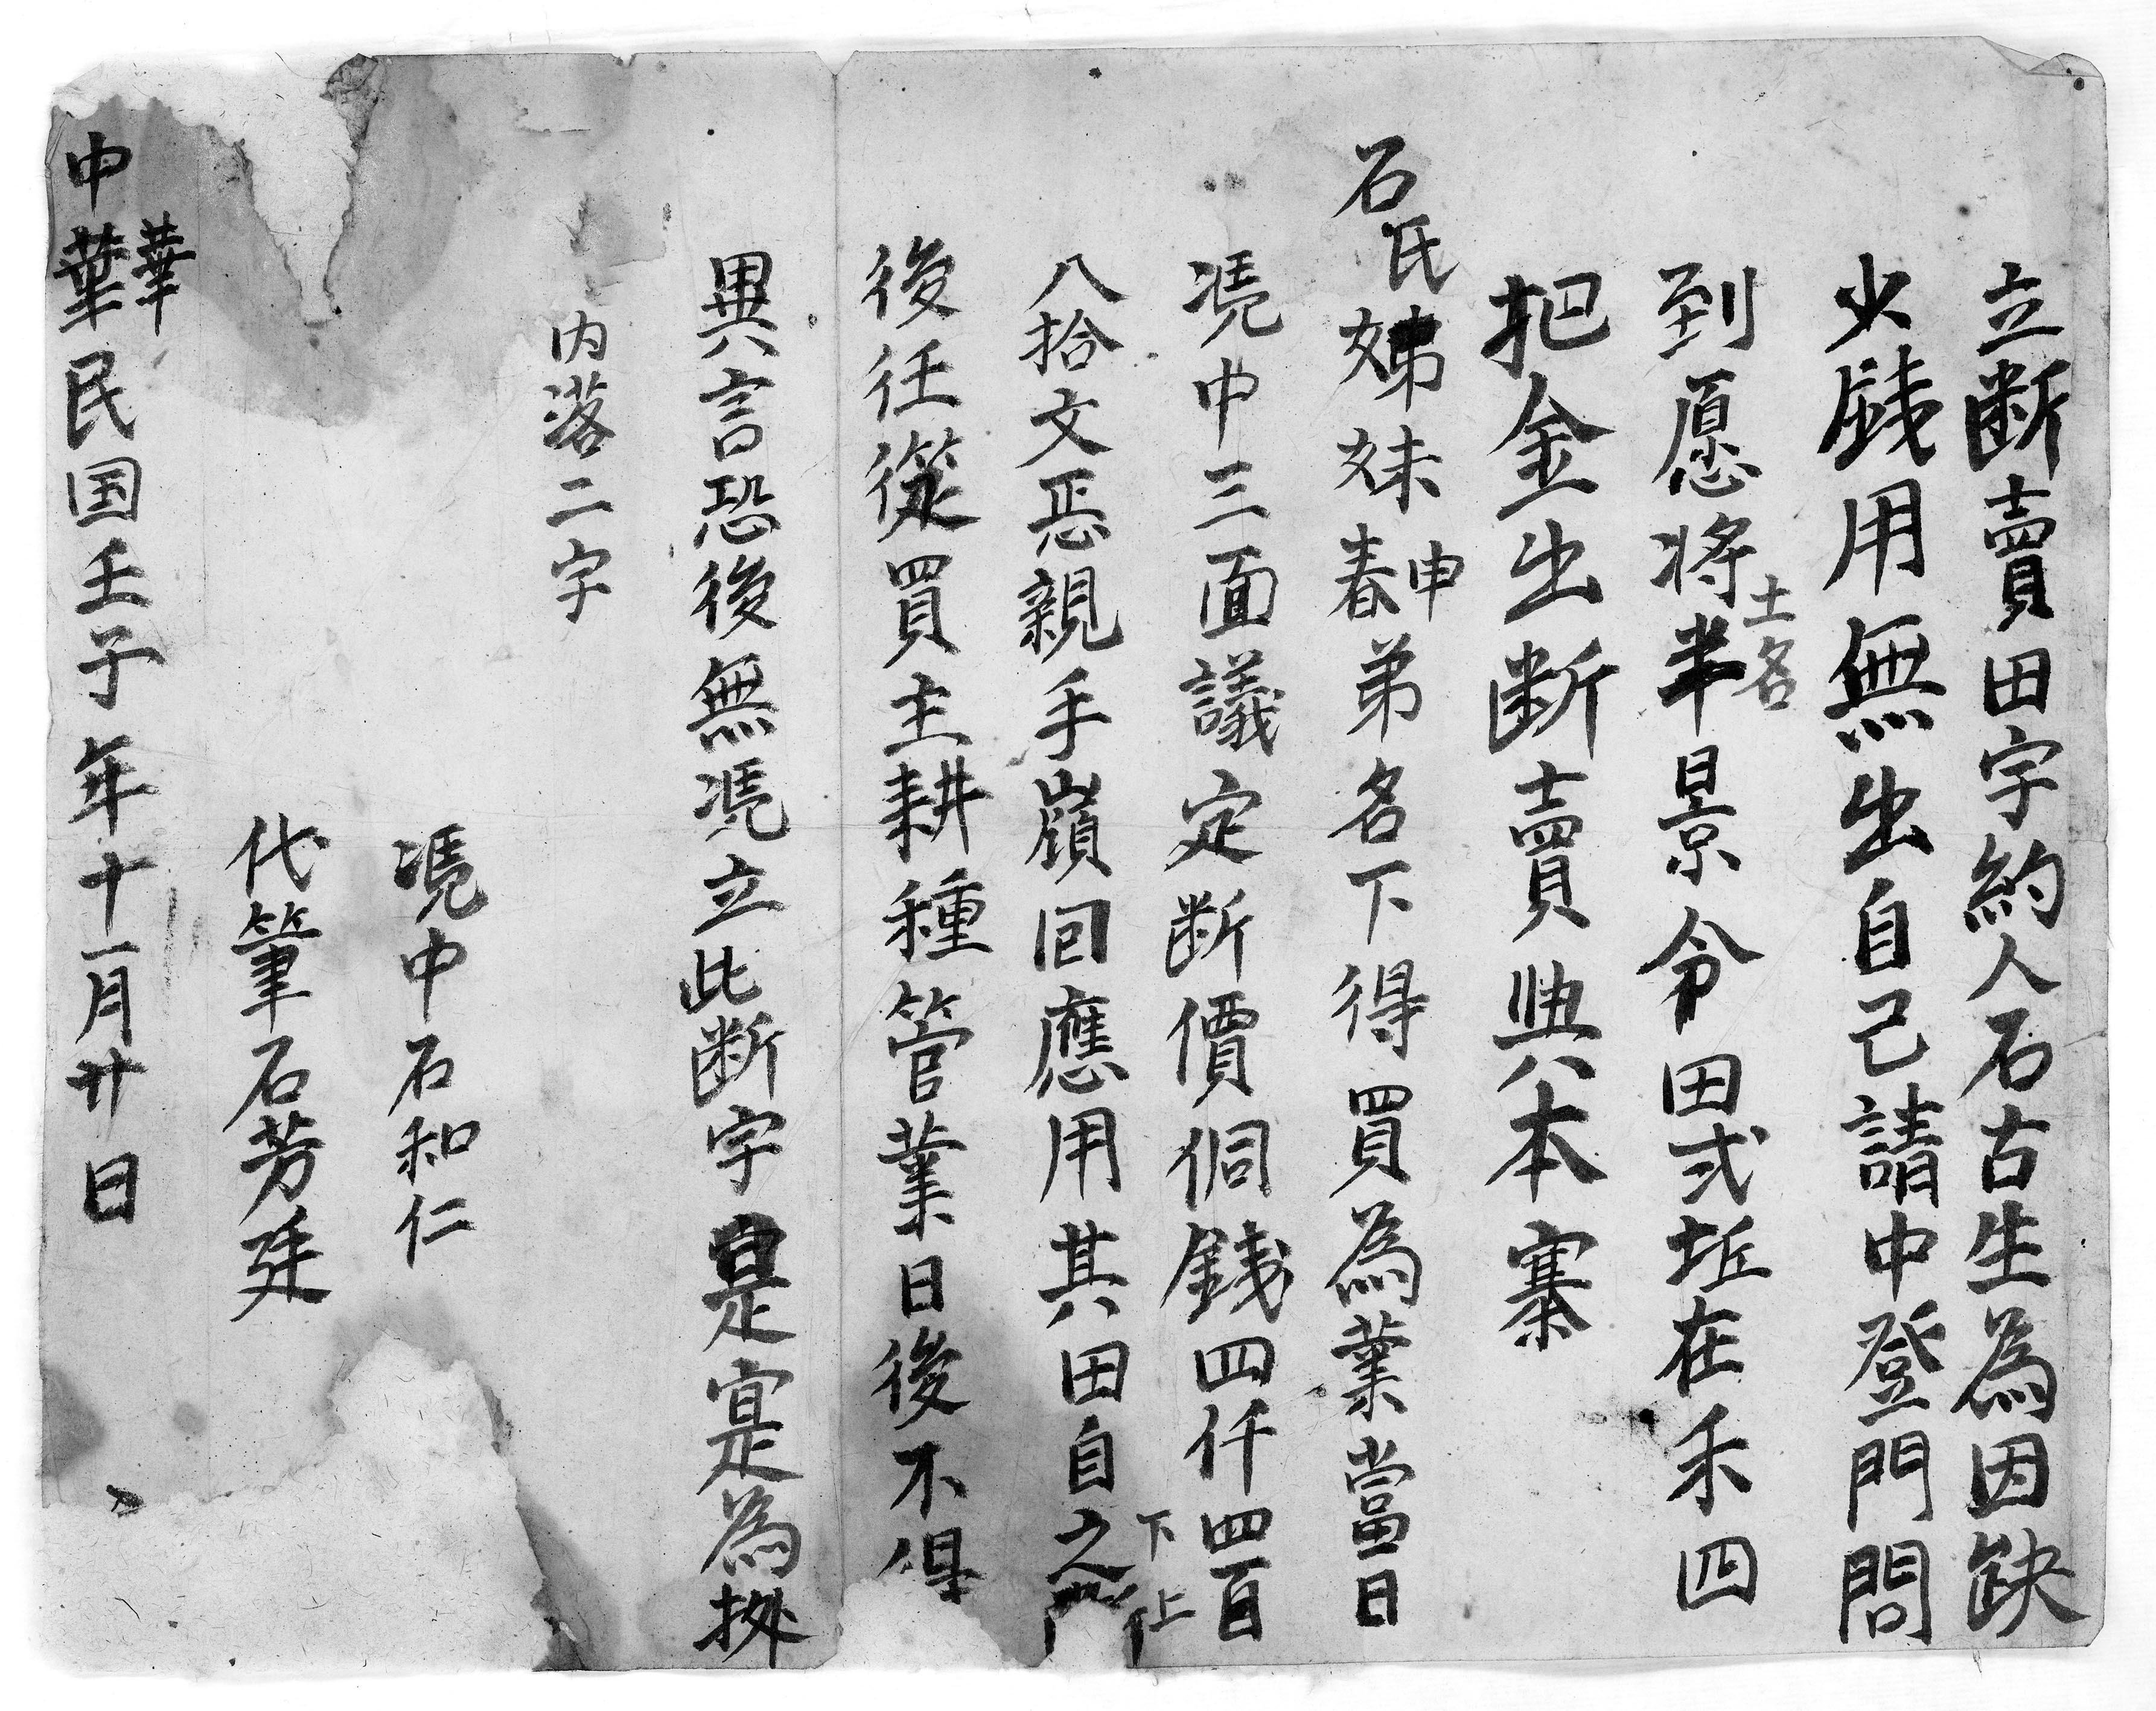 立断賣田字約人石古生為因缺
少銭用無出自己請中登門問
到愿将土名半景令田弍坵在禾四
把金出断賣與本寨
石氏娣妹春申弟名下得買為業當日
凴中三面議定断價侗銭四仟四百
八拾文恁親手嶺回應用其田自之下上
後任從買主耕種管業日後不得
異言恐後無凴立此断字是寔為㨿
内落二字
凴中石和仁
代筆石芳廷
中華華民国壬子年十一月廿日